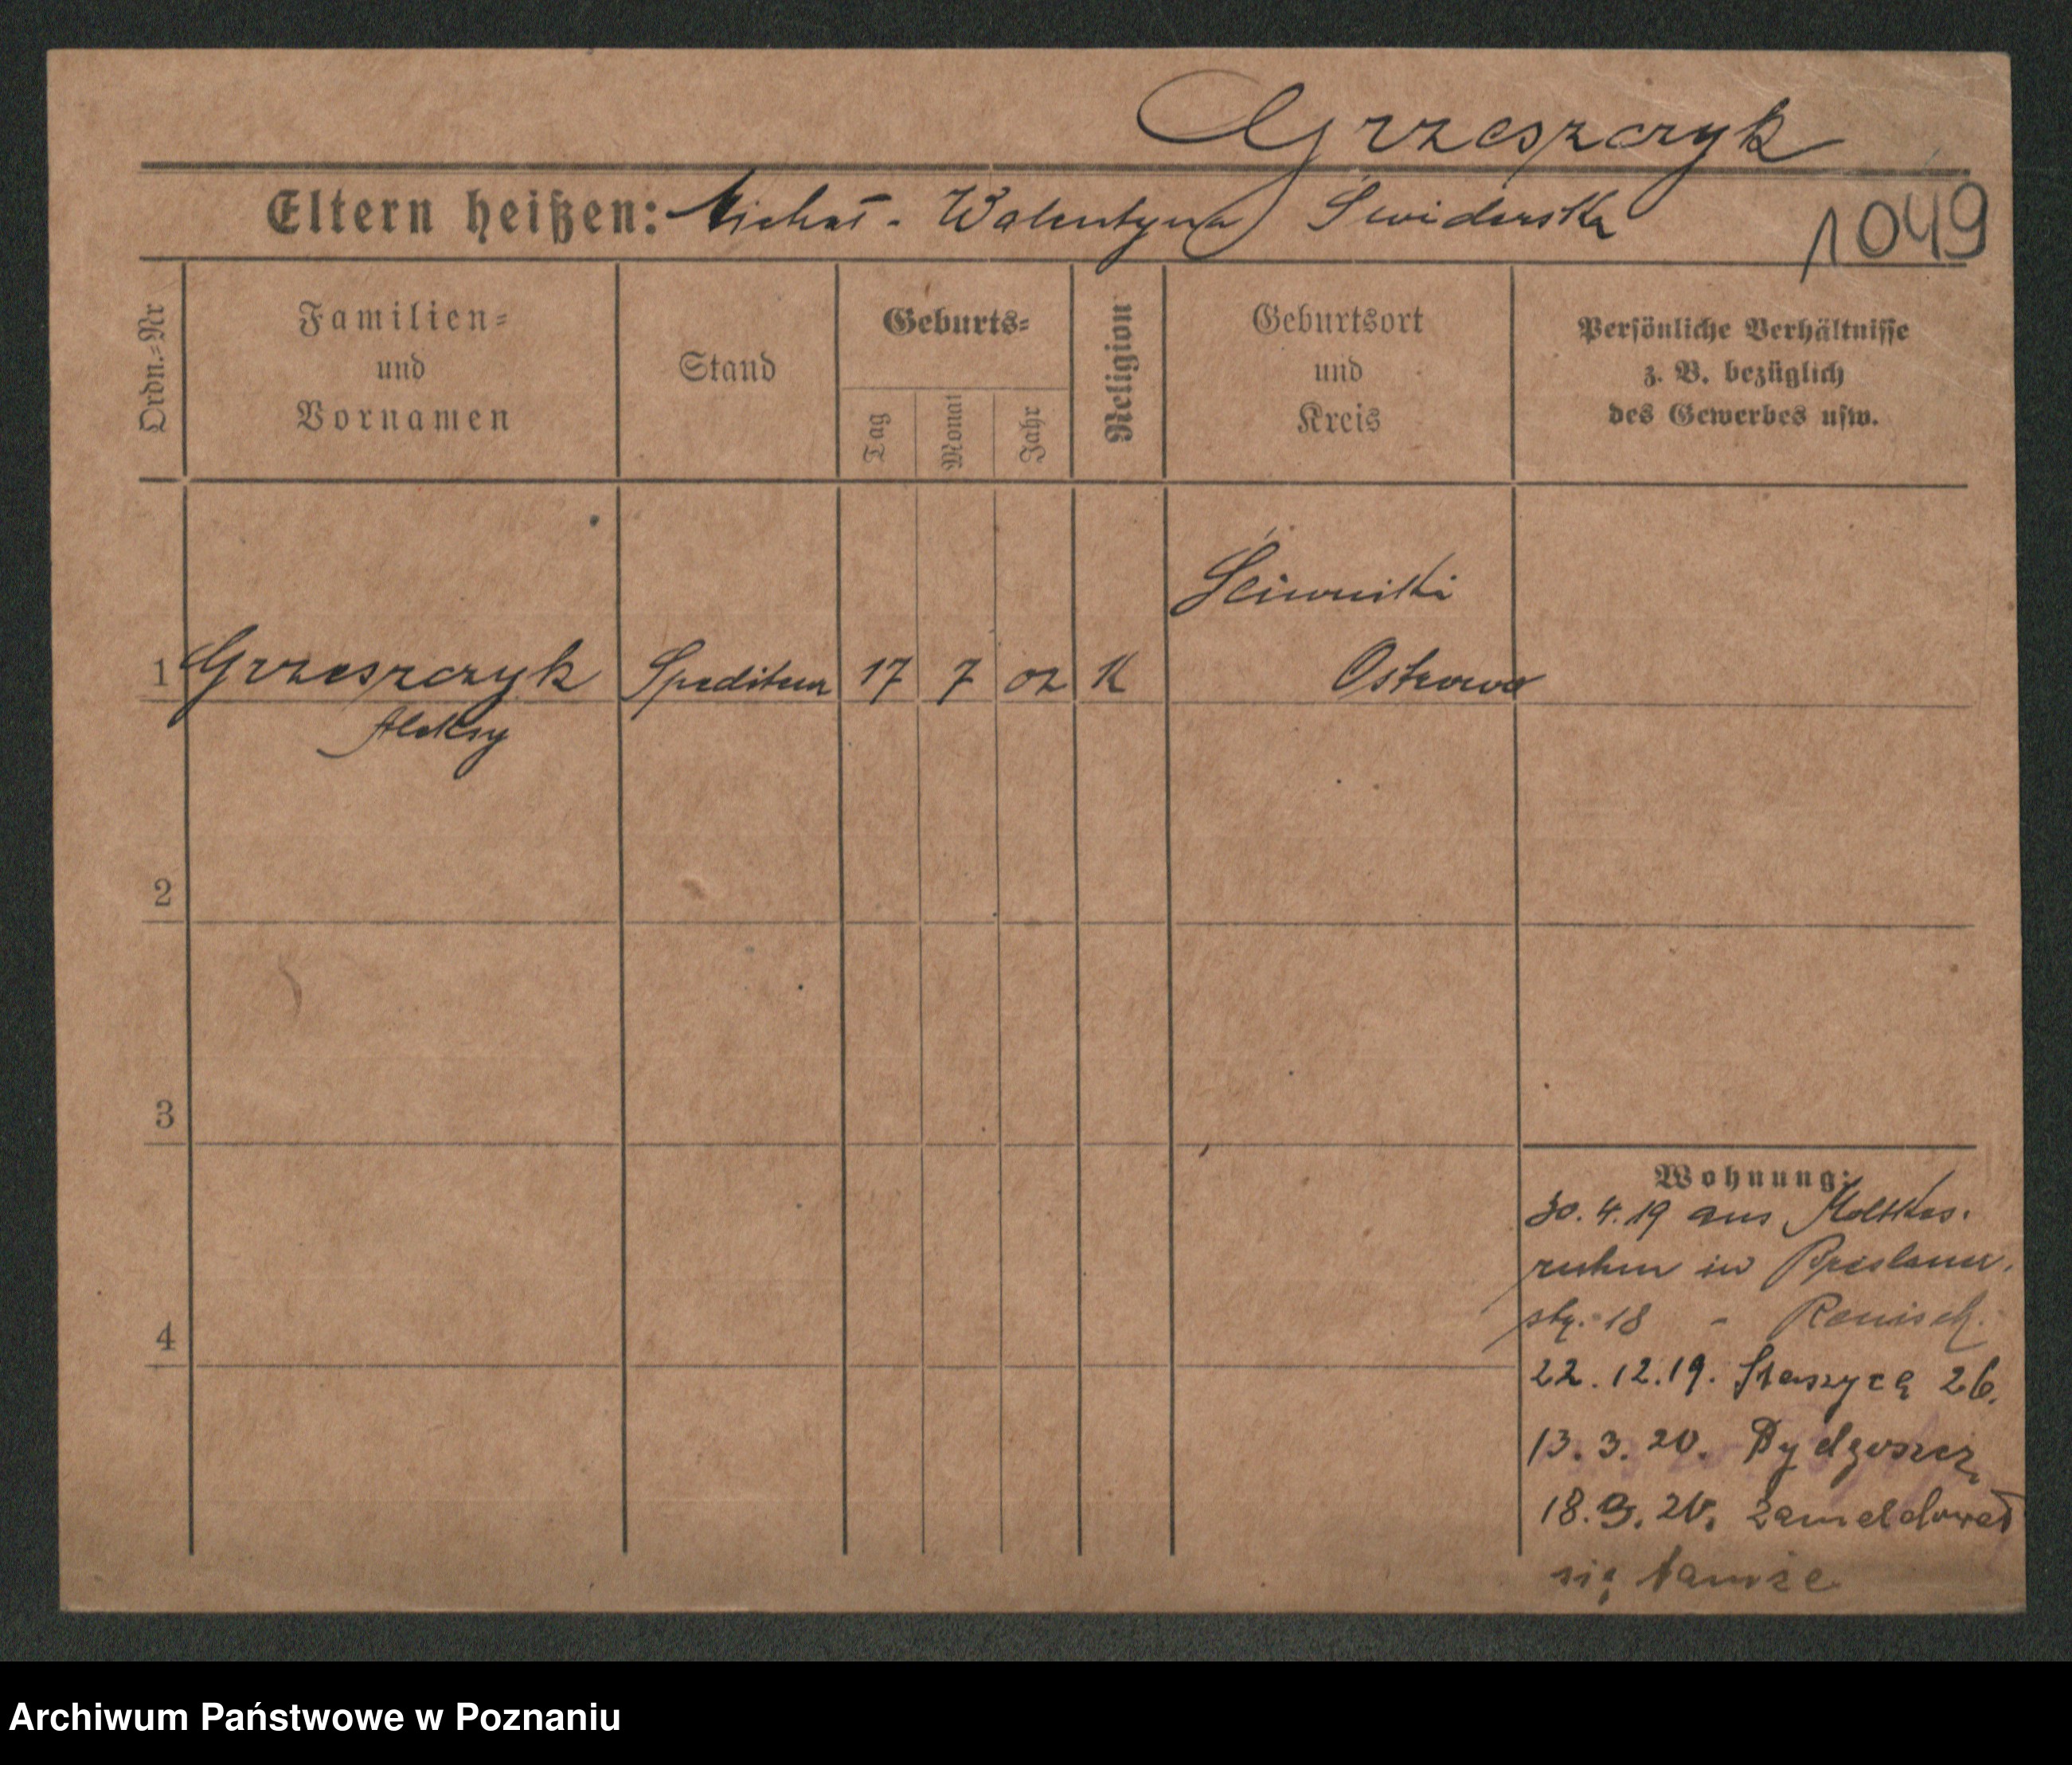 Grzeszczyk
Eltern heißen: Michał - Walentyna Swiderska
1049
Ordn.=Nr
Familien=
und
Vornamen
Stand
Geburts=
Tag
Monat
Jahr
Religion
Geburtsort
und
Kreis
Persönliche Verhältnisse
z. B. bezüglich
des Gewerbes usw.
Sciwniki
1 Grzeszczyk Spediteur 17 7 02 K Ostrowo
Aleksy
2
3
4
Wohnung:
30. 4. 19 aus
in Breslauer.
stg. 18 -
22. 12. 19. Staszyca 26.
13. 3. 20. Bydgoszcz
18. 9. 20. zameldował
się tamże
Archiwum Państwowe w Poznaniu